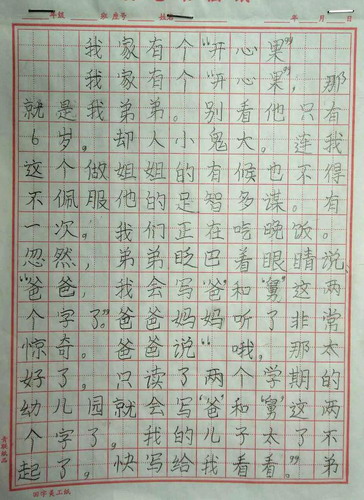 年级 班 座号 姓名 年 月 日
我家有个“开心果”
我家有个“开心果”，那
就是我弟弟。别看他只有
6岁。却人小鬼大。连我
这个做姐姐的有候也不得
不佩服他的足智多谋。有
一次。我们正在吃晚饭。
忽然，弟弟眨巴着眼睛说
“爸爸，我会写“爸”和“舅”这两
个字了。”爸爸妈妈听了非常
惊奇。爸爸说“哦，那太
好了。只读了两个学期的
幼儿园就会写“爸”和“舅”这两
个字了。我的儿子太了不
起了。快写给我看看。”弟
田字美工纸